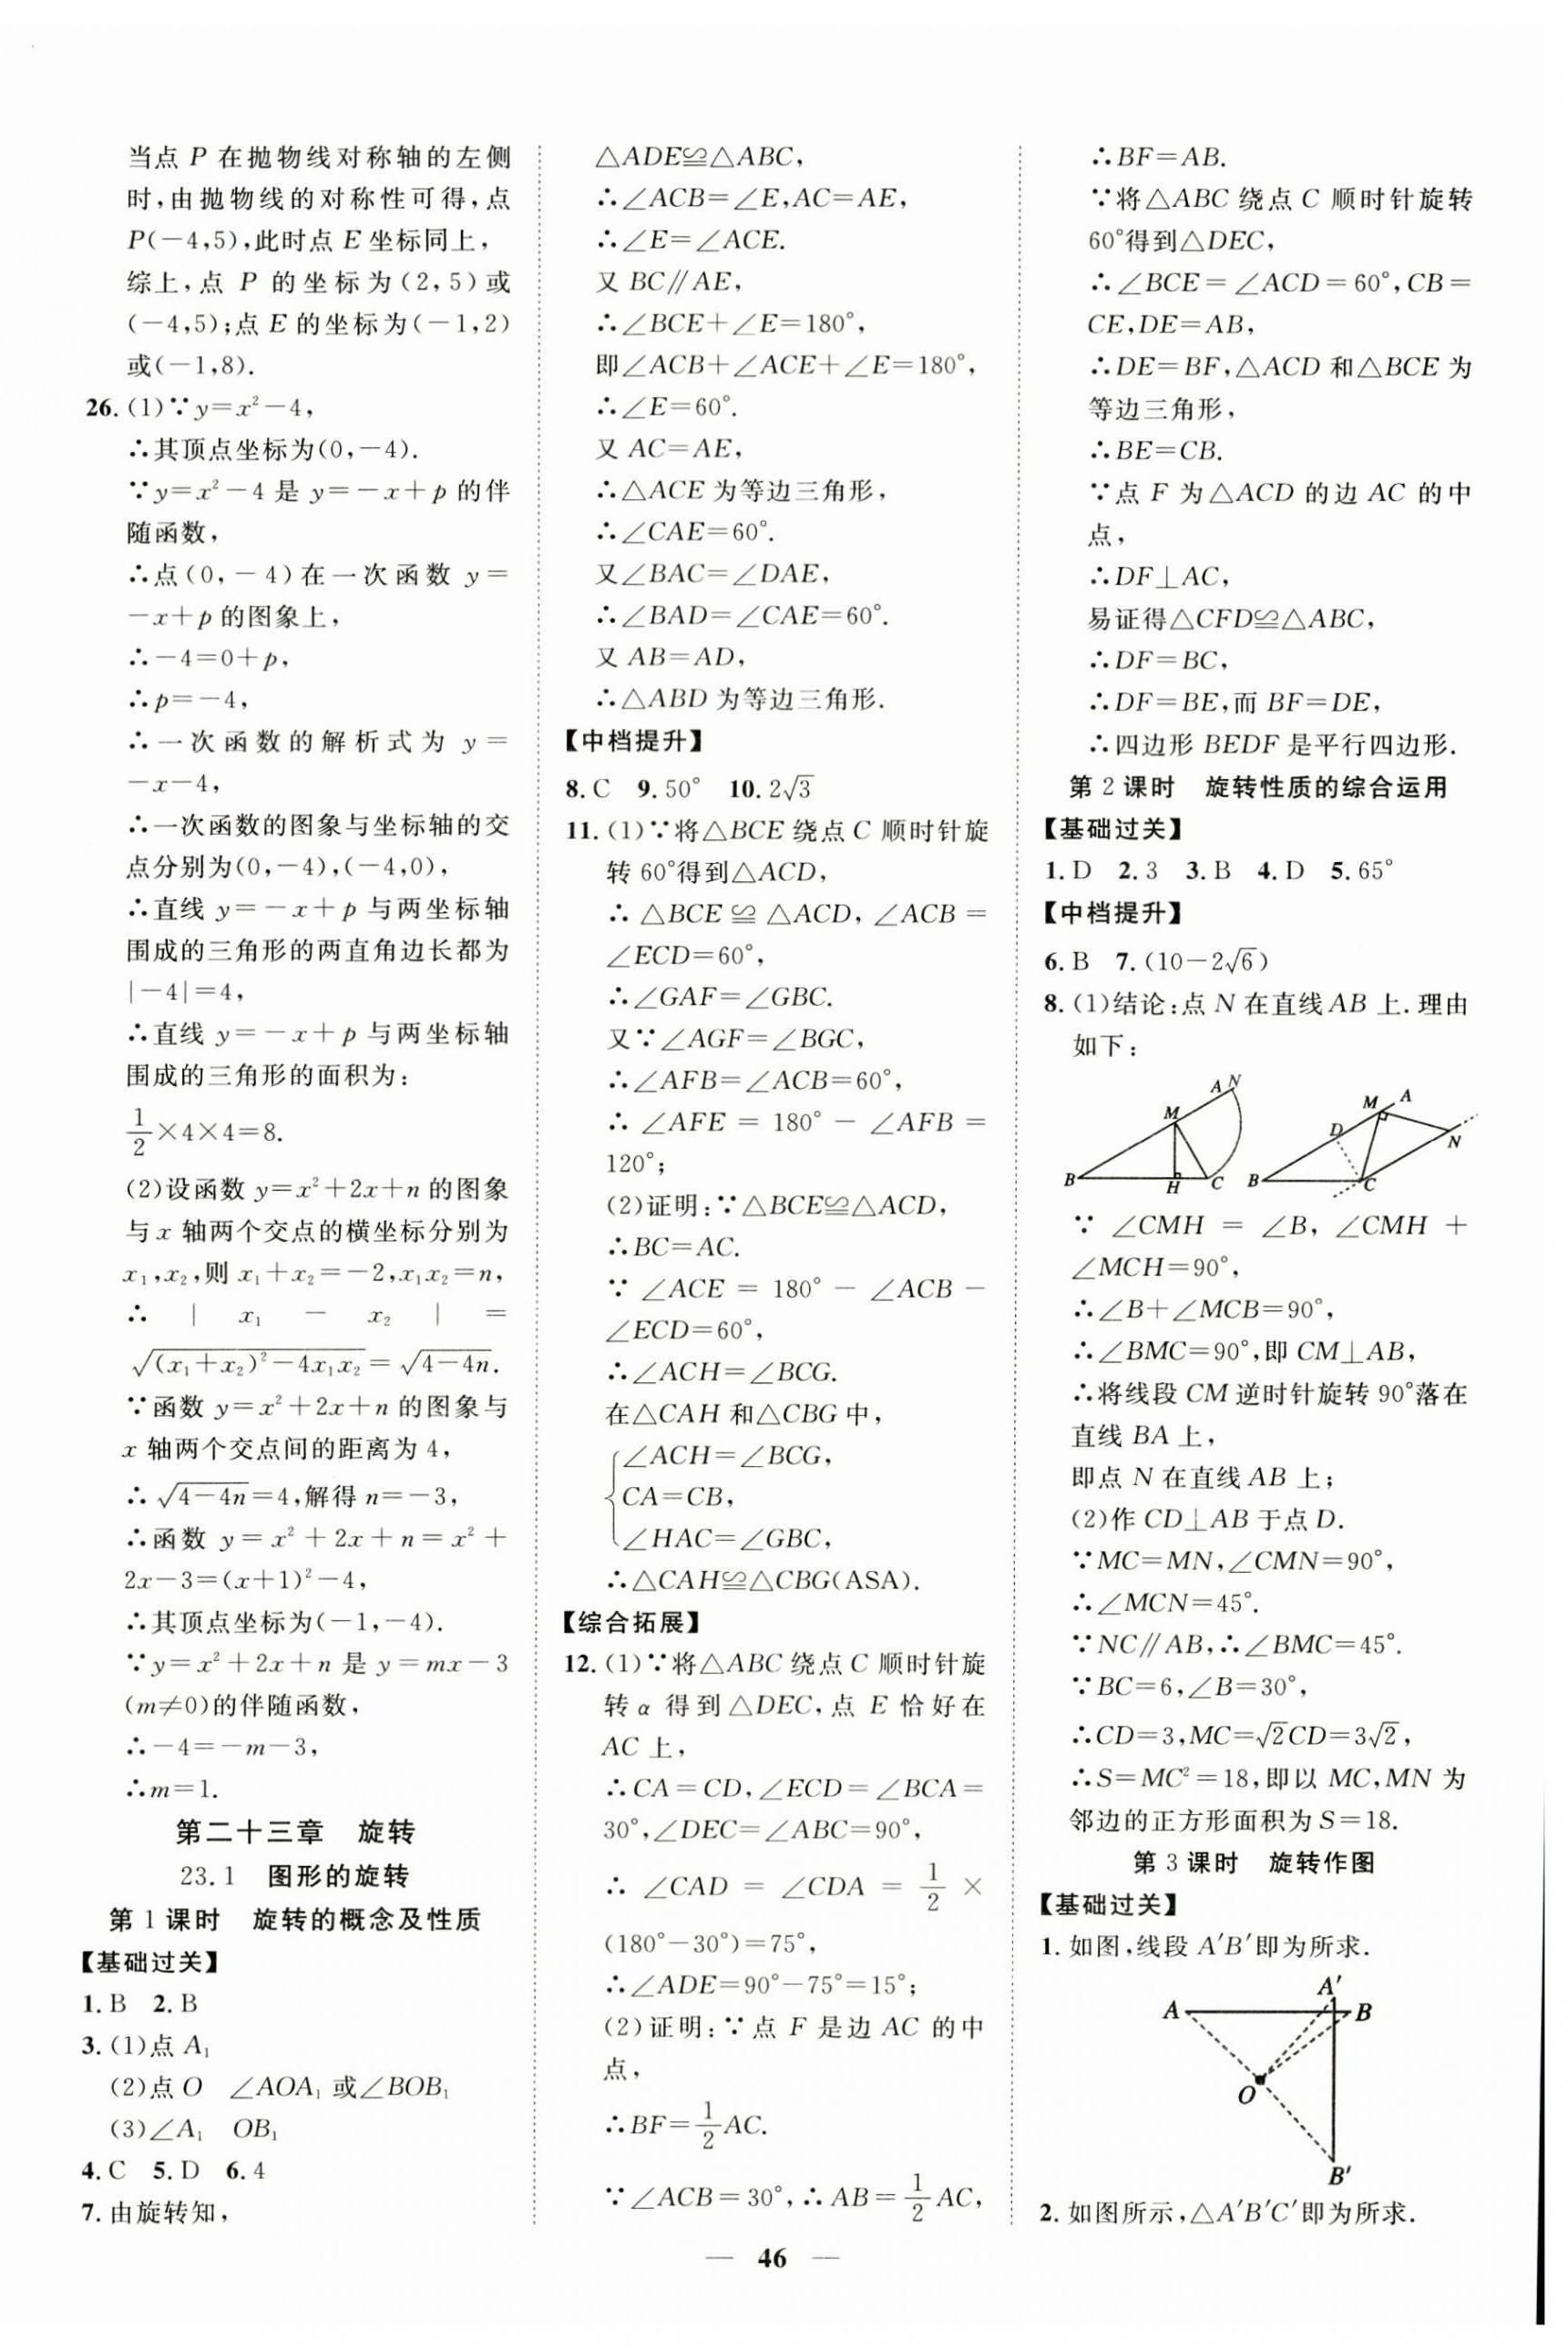 当点 P 在抛物线对称轴的左侧
时,由抛物线的对称性可得,点
P(-4,5),此时点 E 坐标同上,
综上,点 P 的坐标为(2,5)或
(-4,5);点 E 的坐标为(-1,2)
或(-1,8).
26.(1)∵y=x²-4,
∴其顶点坐标为(0,-4).
∵y=x²-4 是 y=-x+p 的伴
随函数,
∴点(0,-4)在一次函数 y=
-x+p 的图象上,
∴-4=0+p,
∴p=-4,
∴一次函数的解析式为 y=
-x-4,
∴一次函数的图象与坐标轴的交
点分别为(0,-4),(-4,0),
∴直线 y=-x+p 与两坐标轴
围成的三角形的两直角边长都为
|-4|=4,
∴直线 y=-x+p 与两坐标轴
围成的三角形的面积为:
1/2×4×4=8.
(2)设函数 y=x²+2x+n 的图象
与 x 轴两个交点的横坐标分别为
x₁,x₂,则 x₁+x₂=-2,x₁x₂=n,
∴ | x₁ - x₂ | =
√((x₁+x₂)²-4x₁x₂)=√(4-4n).
∵函数 y=x²+2x+n 的图象与
x 轴两个交点间的距离为 4,
∴√(4-4n)=4,解得 n=-3,
∴函数 y=x²+2x+n=x²+
2x-3=(x+1)²-4,
∴其顶点坐标为(-1,-4).
∵y=x²+2x+n 是 y=mx-3
(m≠0)的伴随函数,
∴-4=-m-3,
∴m=1.
第二十三章 旋转
23.1 图形的旋转
第 1 课时 旋转的概念及性质
【基础过关】
1.B 2.B
3.(1)点 A₁
(2)点 O ∠AOA₁ 或∠BOB₁
(3)∠A₁ OB₁
4.C 5.D 6.4
7.由旋转知,
△ADE≌△ABC,
∴∠ACB=∠E,AC=AE,
∴∠E=∠ACE.
又 BC∥AE,
∴∠BCE+∠E=180°,
即∠ACB+∠ACE+∠E=180°,
∴∠E=60°.
又 AC=AE,
∴△ACE 为等边三角形,
∴∠CAE=60°.
又∠BAC=∠DAE,
∴∠BAD=∠CAE=60°.
又 AB=AD,
∴△ABD 为等边三角形.
【中档提升】
8.C 9.50° 10.2√3
11.(1)∵将△BCE 绕点 C 顺时针旋
转 60°得到△ACD,
∴△BCE≌△ACD,∠ACB=
∠ECD=60°,
∴∠GAF=∠GBC.
又∵∠AGF=∠BGC,
∴∠AFB=∠ACB=60°,
∴∠AFE=180°-∠AFB=
120°;
(2)证明:∵△BCE≌△ACD,
∴BC=AC.
∵∠ACE=180°-∠ACB-
∠ECD=60°,
∴∠ACH=∠BCG.
在△CAH 和△CBG 中,
∠ACH=∠BCG,
CA=CB,
∠HAC=∠GBC,
∴△CAH≌△CBG(ASA).
【综合拓展】
12.(1)∵将△ABC 绕点 C 顺时针旋
转 α 得到△DEC,点 E 恰好在
AC 上,
∴CA=CD,∠ECD=∠BCA=
30°,∠DEC=∠ABC=90°,
∴∠CAD=∠CDA=1/2×
(180°-30°)=75°,
∴∠ADE=90°-75°=15°;
(2)证明:∵点 F 是边 AC 的中
点,
∴BF=1/2AC.
∵∠ACB=30°,∴AB=1/2AC,
∴BF=AB.
∵将△ABC 绕点 C 顺时针旋转
60°得到△DEC,
∴∠BCE=∠ACD=60°,CB=
CE,DE=AB,
∴DE=BF,△ACD 和△BCE 为
等边三角形,
∴BE=CB.
∵点 F 为△ACD 的边 AC 的中
点,
∴DF⊥AC,
易证得△CFD≌△ABC,
∴DF=BC,
∴DF=BE,而 BF=DE,
∴四边形 BEDF 是平行四边形.
第 2 课时 旋转性质的综合运用
【基础过关】
1.D 2.3 3.B 4.D 5.65°
【中档提升】
6.B 7.(10-2√6)
8.(1)结论:点 N 在直线 AB 上.理由
如下:
A N
M
B H C
M A
D
N
B C
∵∠CMH=∠B,∠CMH+
∠MCH=90°,
∴∠B+∠MCB=90°,
∴∠BMC=90°,即 CM⊥AB,
∴将线段 CM 逆时针旋转 90°落在
直线 BA 上,
即点 N 在直线 AB 上;
(2)作 CD⊥AB 于点 D.
∵MC=MN,∠CMN=90°,
∴∠MCN=45°.
∵NC∥AB,∴∠BMC=45°.
∵BC=6,∠B=30°,
∴CD=3,MC=√2CD=3√2,
∴S=MC²=18,即以 MC,MN 为
邻边的正方形面积为 S=18.
第 3 课时 旋转作图
【基础过关】
1.如图,线段 A′B′即为所求.
A′
A B
O
B′
2.如图所示,△A′B′C′即为所求.
— 46 —